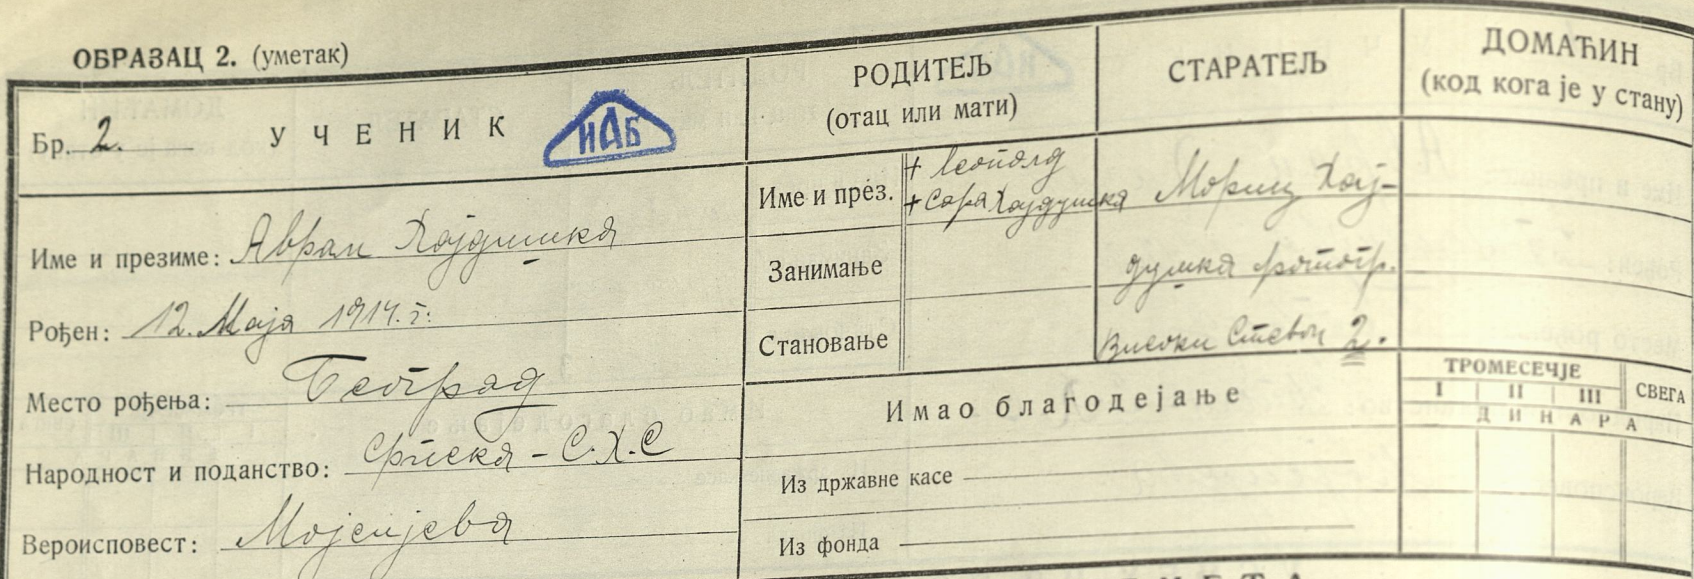 ОБРАЗАЦ 2. (уметак)
Бр. 2. УЧЕНИК
ИАБ
Име и презиме: Аврам Хајдушка
Рођен: 12. Маја 1914. г.
Место рођења: Београд
Народност и поданство: Српска - С.Х.С
Вероисповест: Мојсијева
РОДИТЕЉ
(отац или мати)
СТАРАТЕЉ
ДОМАЋИН
(код кога је у стану)
Име и през. + Леополд
+ Сара Хајдушка
Мориц Хај-
Занимање
душка фотогр.
Становање
Високи Стеван 2.
Имао благодејање
ТРОМЕСЕЧЈЕ
СВЕГА
I II III
ДИНАРА
Из државне касе
Из фонда